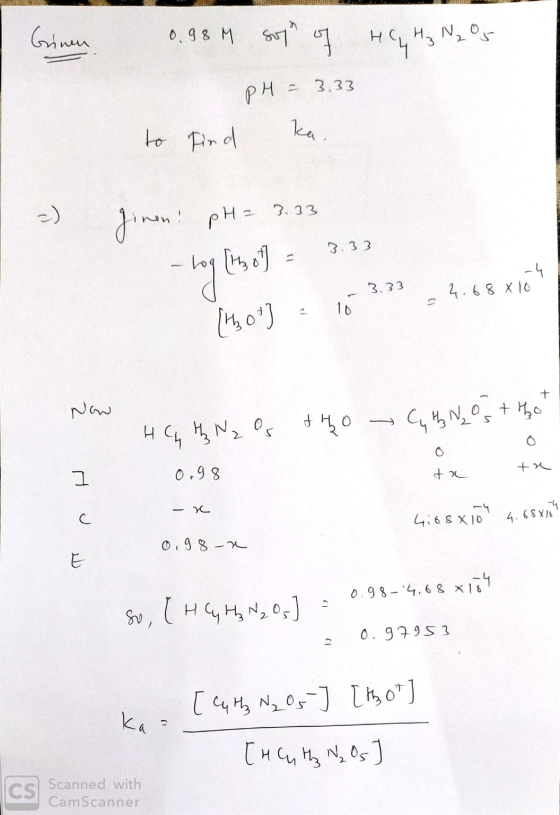 Given 0.98 M solⁿ of HC₄H₃N₂O₅
pH = 3.33
to find ka.
=) given: pH = 3.33
- log [H₃O⁺] = 3.33
[H₃O⁺] = 10⁻³·³³ = 4.68 × 10⁻⁴
Now HC₄H₃N₂O₅ + H₂O → C₄H₃N₂O₅⁻ + H₃O⁺
I 0.98 0 0
C - x + x + x
E 0.98 - x 4.68 × 10⁻⁴ 4.68 × 10⁻⁴
so, [HC₄H₃N₂O₅] = 0.98 - 4.68 × 10⁻⁴
= 0.97953
Ka = [C₄H₃N₂O₅⁻] [H₃O⁺]
[HC₄H₃N₂O₅]
CS Scanned with
CamScanner